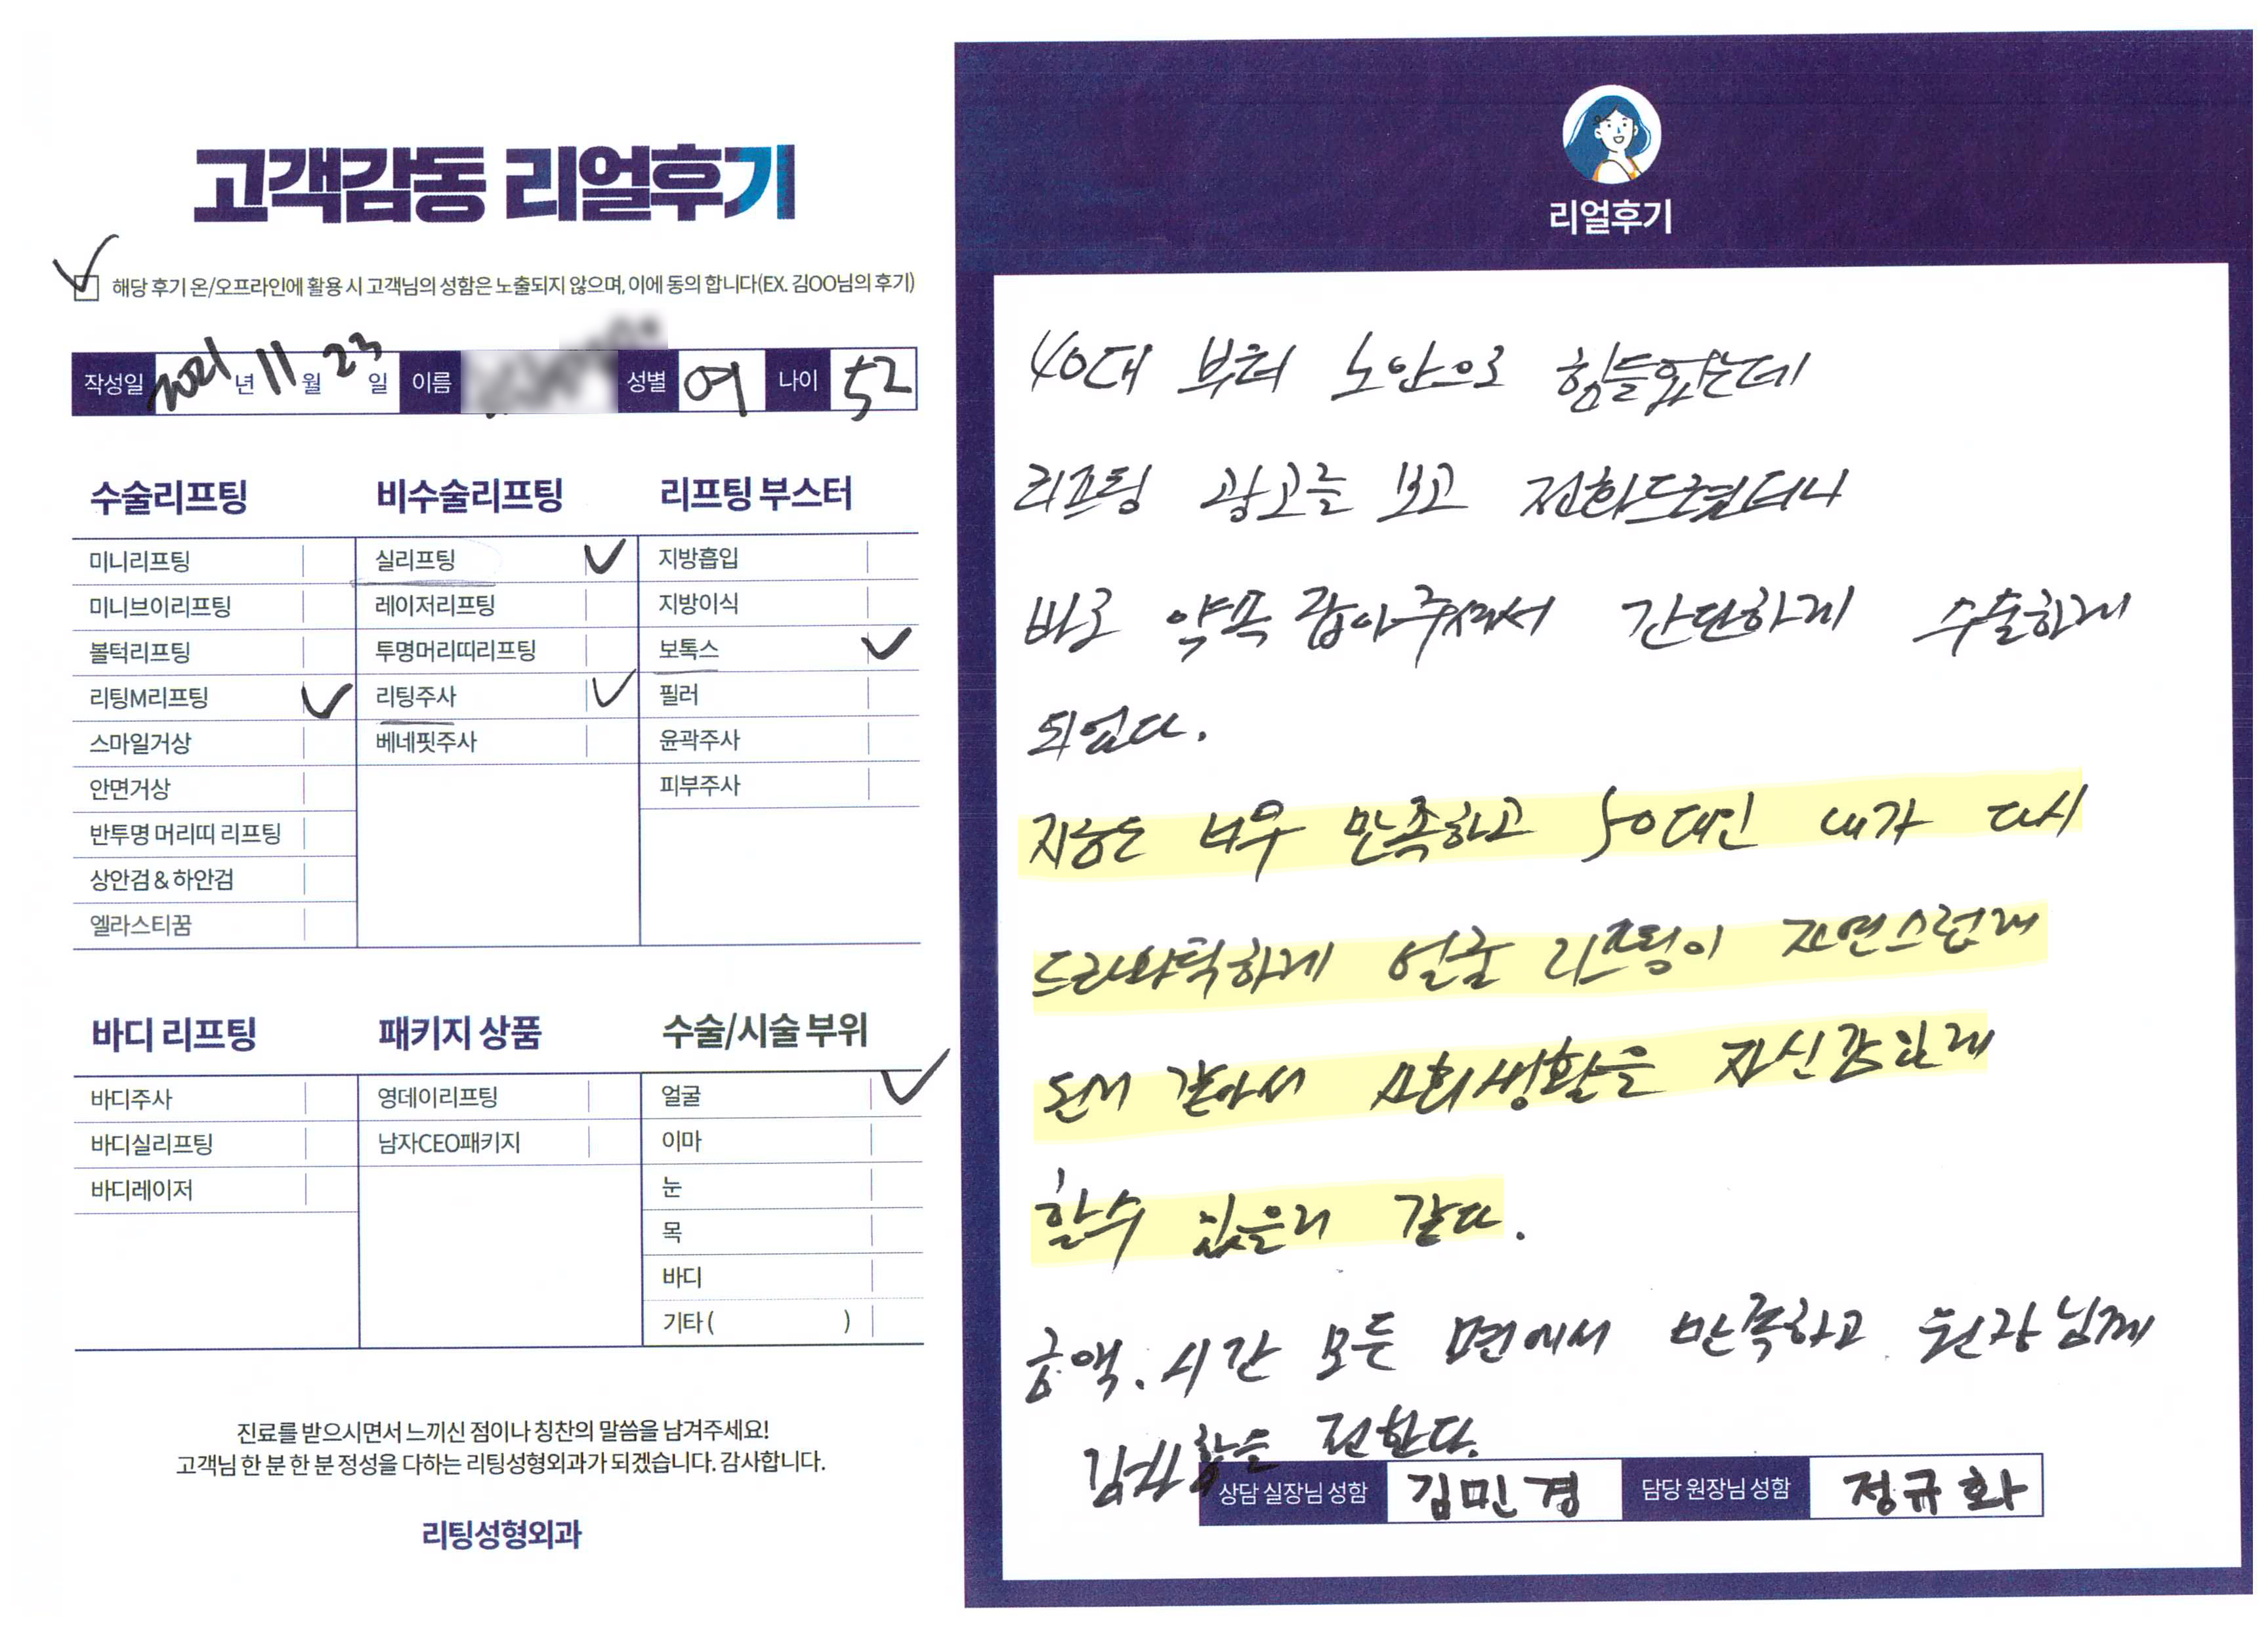 고객감동 리얼후기
해당 후기 온/오프라인에 활용 시 고객님의 성함은 노출되지 않으며, 이에 동의 합니다(EX. 김OO님의 후기)
작성일 2021 년 11 월 23 일 이름 성별 여 나이 52
수술리프팅 비수술리프팅 리프팅 부스터
미니리프팅 실리프팅 지방흡입
미니브이리프팅 레이저리프팅 지방이식
볼턱리프팅 투명머리띠리프팅 보톡스
리팅M리프팅 리팅주사 필러
스마일거상 베네핏주사 윤곽주사
안면거상 피부주사
반투명 머리띠 리프팅
상안검 & 하안검
엘라스티꿈
바디 리프팅 패키지 상품 수술/시술 부위
바디주사 영데이리프팅 얼굴
바디실리프팅 남자CEO패키지 이마
바디레이저 눈
목
바디
기타 ( )
진료를 받으시면서 느끼신 점이나 칭찬의 말씀을 남겨주세요!
고객님 한 분 한 분 정성을 다하는 리팅성형외과가 되겠습니다. 감사합니다.
리팅성형외과
리얼후기
40대 부터 노안으로 힘들었는데
리프팅 광고를 보고 전화드렸더니
바로 약속 잡아주셔서 간단하게 수술하게
되었다.
지금은 너무 만족하고 50대인 내가 다시
드라마틱하게 얼굴 리프팅이 자연스럽게
된거 같아서 사회생활을 자신감있게
할수 있을거 같다.
금액. 시간 모든 면에서 만족하고 원장님께
감사함을 전한다.
상담 실장님 성함 김민경 담당 원장님 성함 정규화